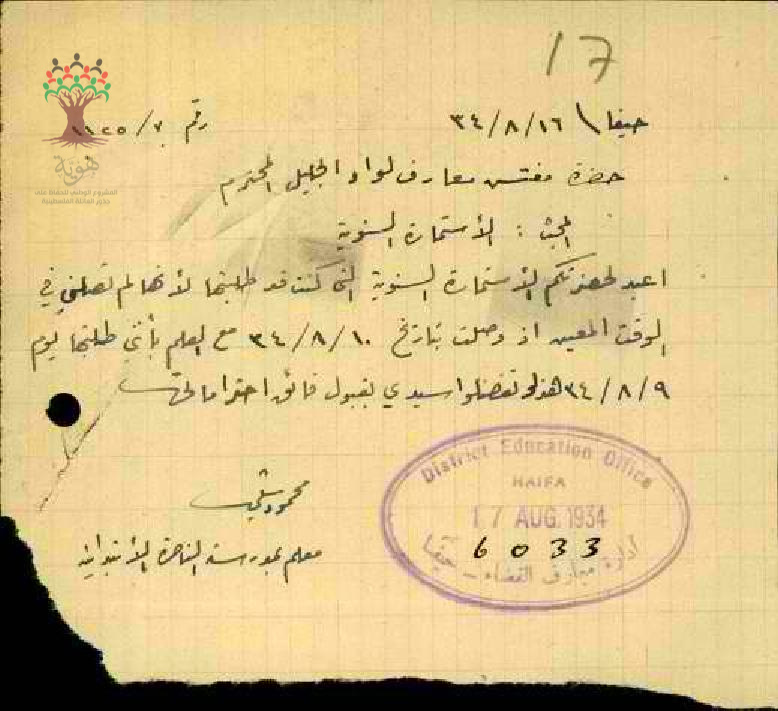 17
حيفا \ ٣٤/٨/١٦
رقم ٧/
هوية
المشروع الوطني للحفاظ على
جذور العائلة الفلسطينية
حضرة مفتش معارف لواء الجليل المحترم
المبحث : الأستمارة السنوية
اعيد لحضرتكم الأستمارة السنوية التي كنت قد طلبتها لأنها لم تصلني في
الوقت المعين اذ وصلت بتاريخ ٣٤/٨/١٠ مع العلم بأنني طلبتها يوم
٣٤/٨/٩ هذا وتفضلوا سيدي بقبول فائق احتراماتي
محمود
معلم بمدرسة الناصرة الأبتدائية
District Education Office
HAIFA
17 AUG. 1934
6033
ادارة معارف القضاء - حيفا